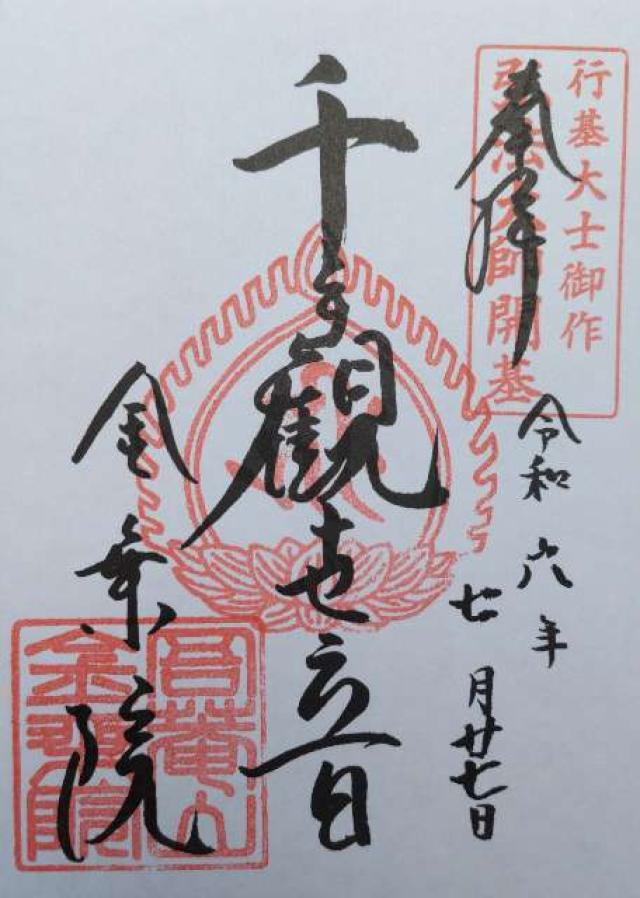 行基大士御作
弘法大師開基
奉拝
令和六年
七月廿七日
千手観世音
金乗院